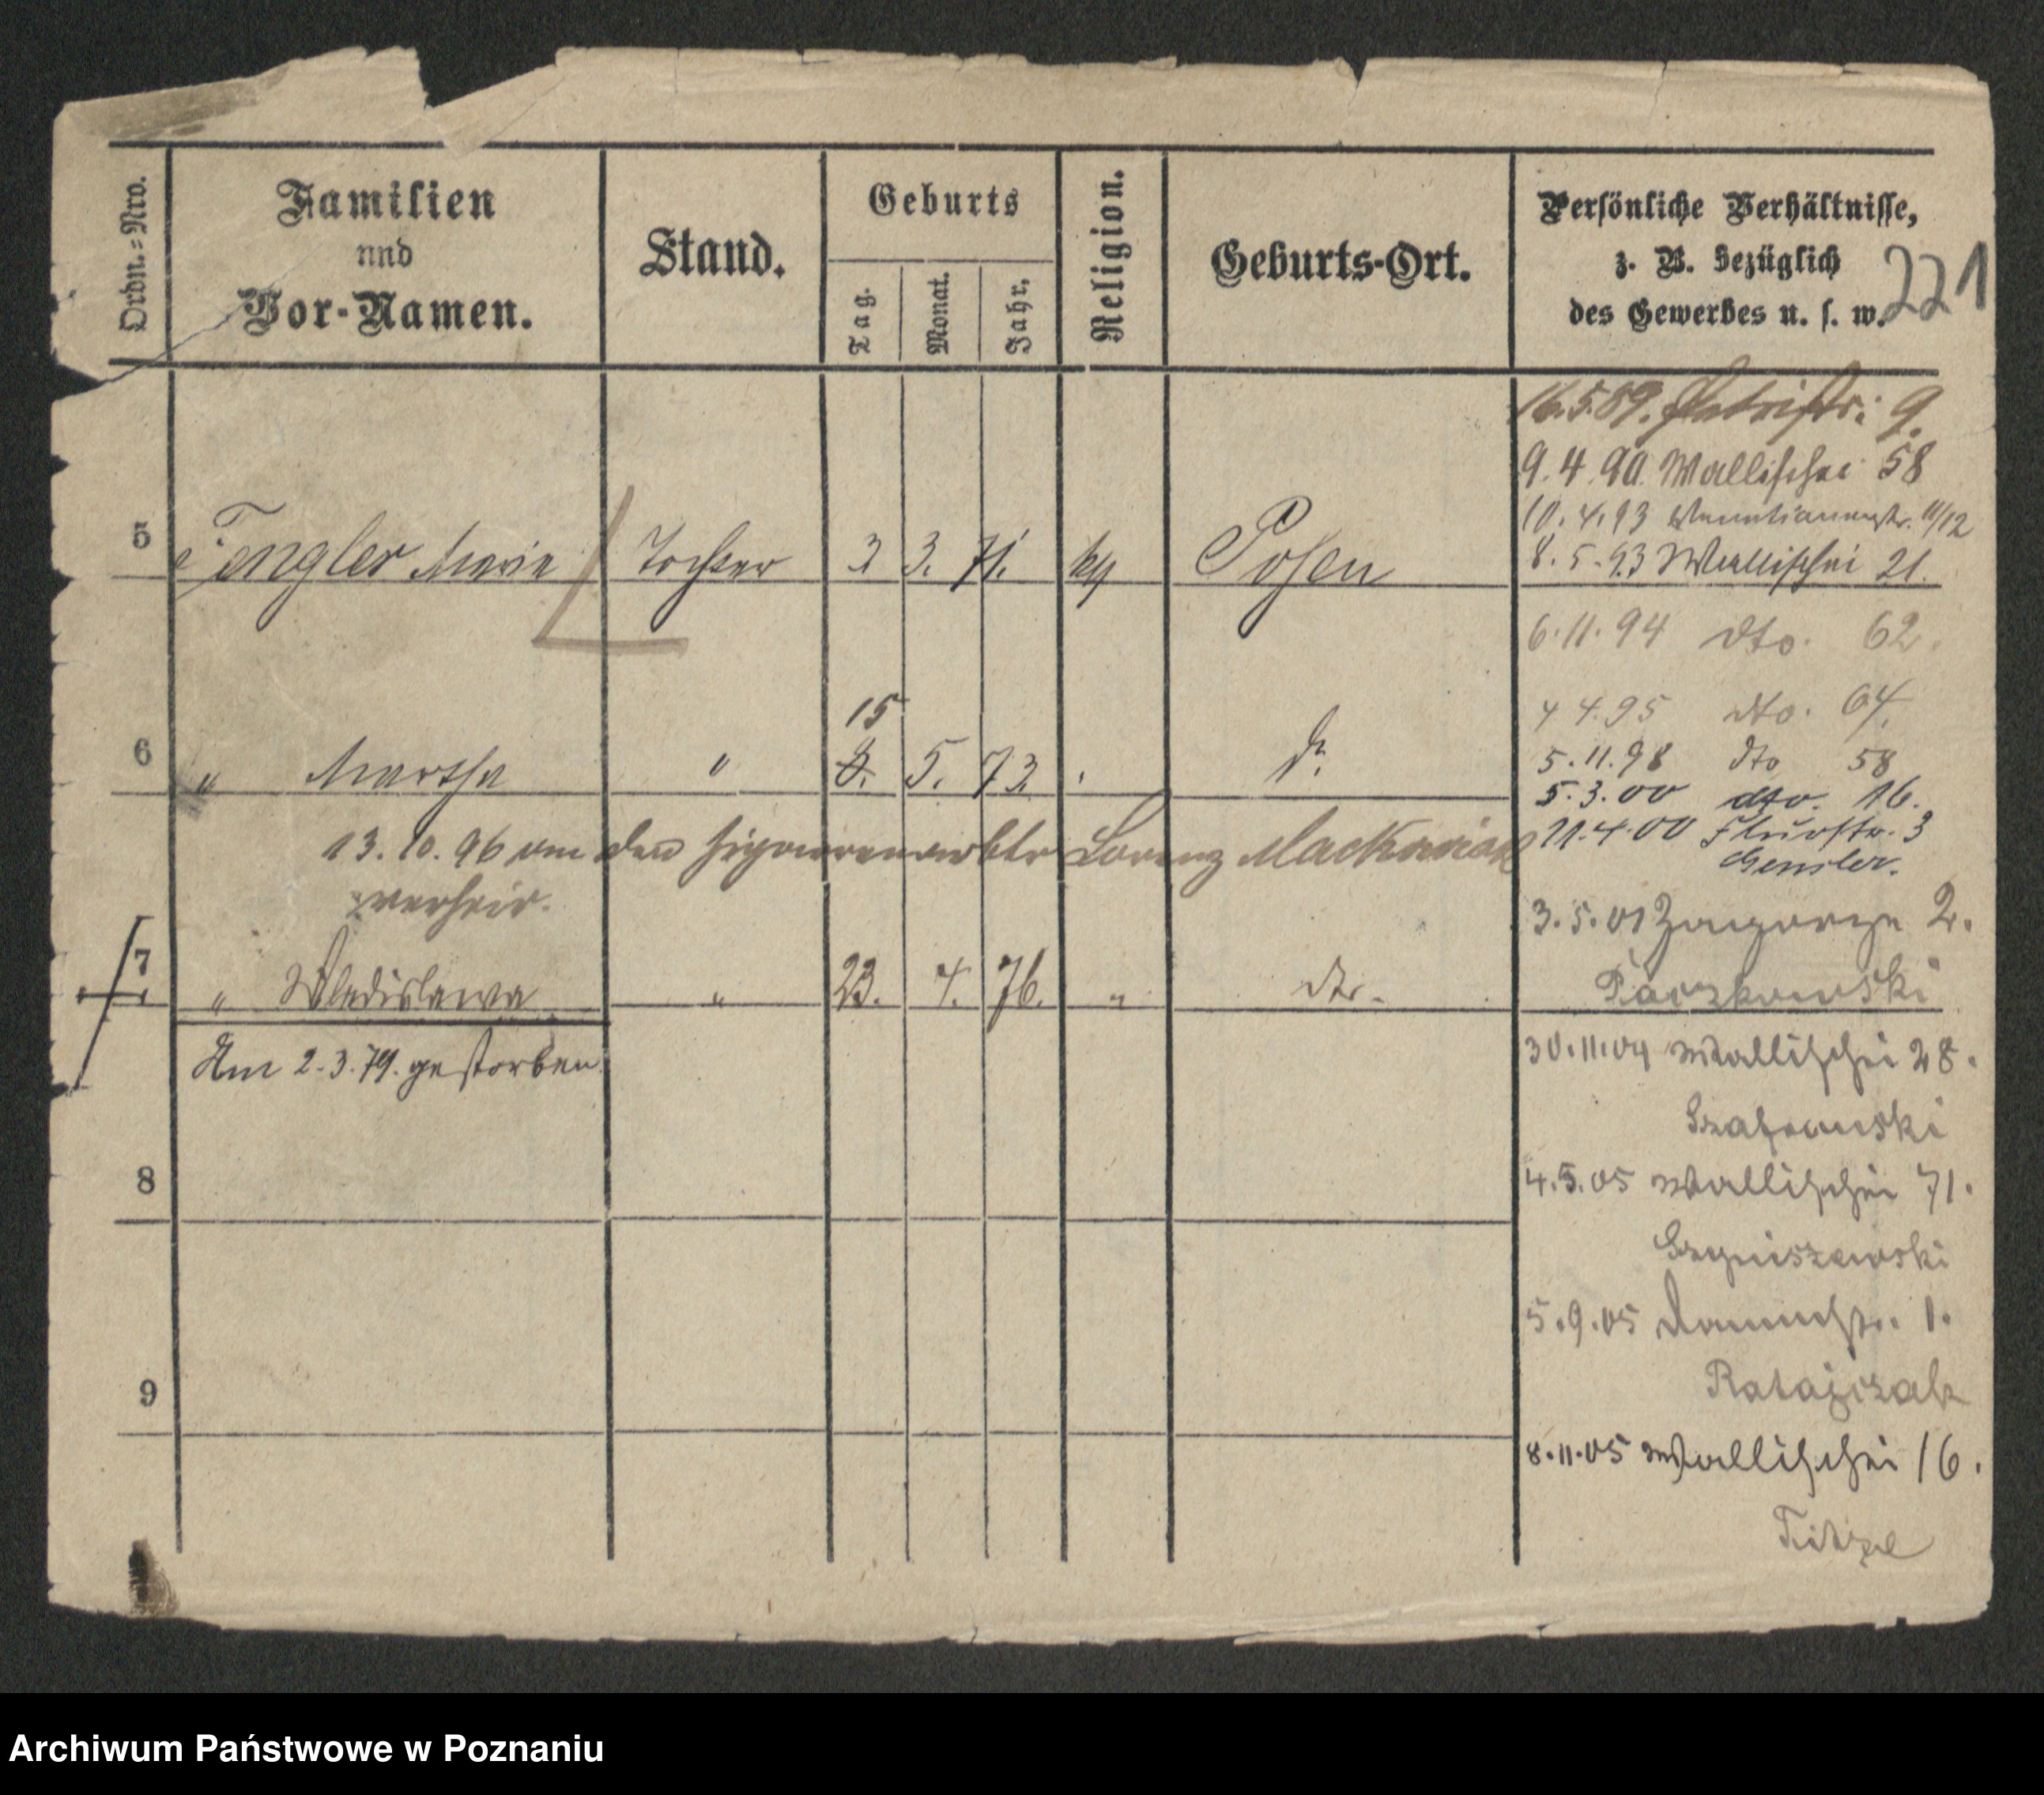 Ordn.=Nro.
Familien
und
Vor-Namen.
Stand.
Geburts
Tag.
Monat.
Jahr.
Religion.
Geburts-Ort.
Persönliche Verhältnisse,
z. B. bezüglich
des Gewerbes u. s. w.
221
16.5.89. 9.
9.4.90. Wallischei 58
10.4.93 11/12
8.5.93 Wallischei 21.
5 Tengler Marie Tochter 2 3. 71. kg Posen
6.11.94 dto. 62.
4 4.95 dto. 64.
15
6 " Martha " 8. 5. 73. do.
5.11.98 dto 58
5.3.00 dto. 16.
13.10.96 den Zigarrenarbtr Lorenz Mackowiak
verheir.
21.4.00 Flurstr. 3
Gensler.
3.5.01 Zagorze 2.
7 " Wladislawa " 23. 4. 76. " dto.
Paczkowski
Am 2.3.79. gestorben.
30.11.04 Wallischei 28.
Szafranski
8
4.5.05 Wallischei 71.
5.9.05 Dammstr. 1.
Ratajczak
9
8.11.05 Wallischei 16.
Titze
Archiwum Państwowe w Poznaniu